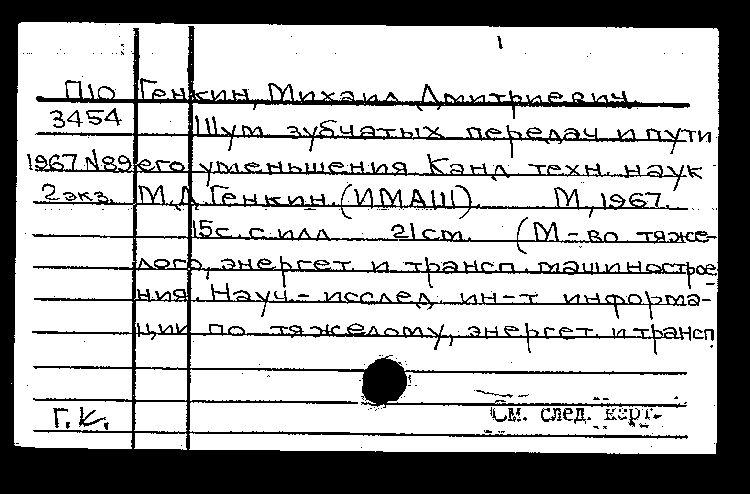 1
П10 Генкин, Михаил Дмитриевич.
3454 Шум зубчатых передач и пути
1967 N89 его уменьшения. Канд. техн. наук
2 экз. М.Д. Генкин. (ИМАШ). М, 1967.
15с. с илл. 21 см. (М-во тяже-
лого, энергет. и трансп. машиностро­е
ния. Науч.-исслед. ин-т информа-
ции по тяжелому, энергет. и трансп
Г.К. См. след. карт-